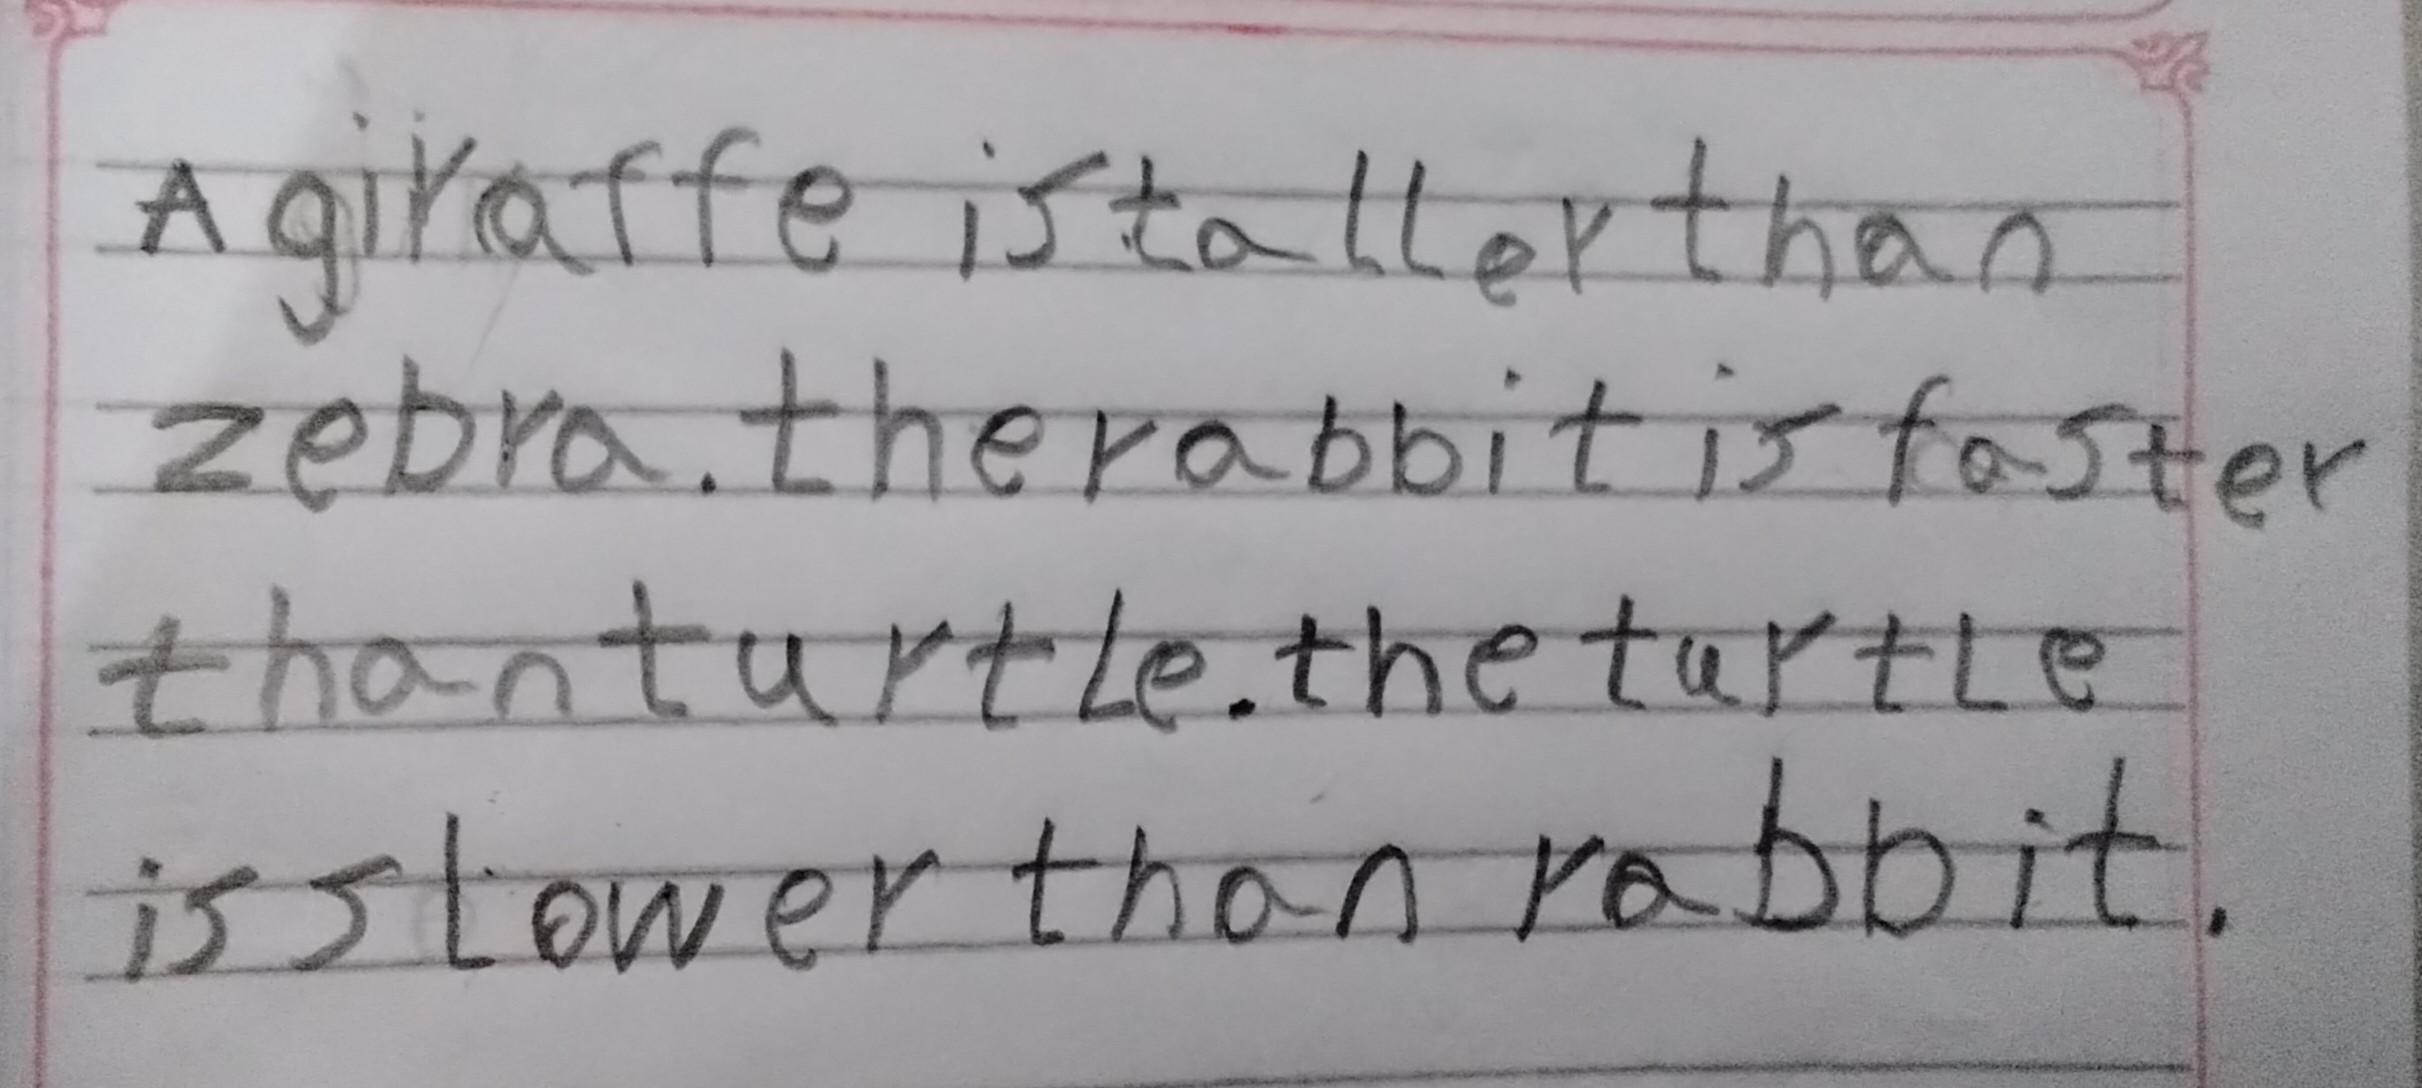 A giraffe is taller than
zebra. the rabbit is faster
than turtle. the turtle
is slower than rabbit.